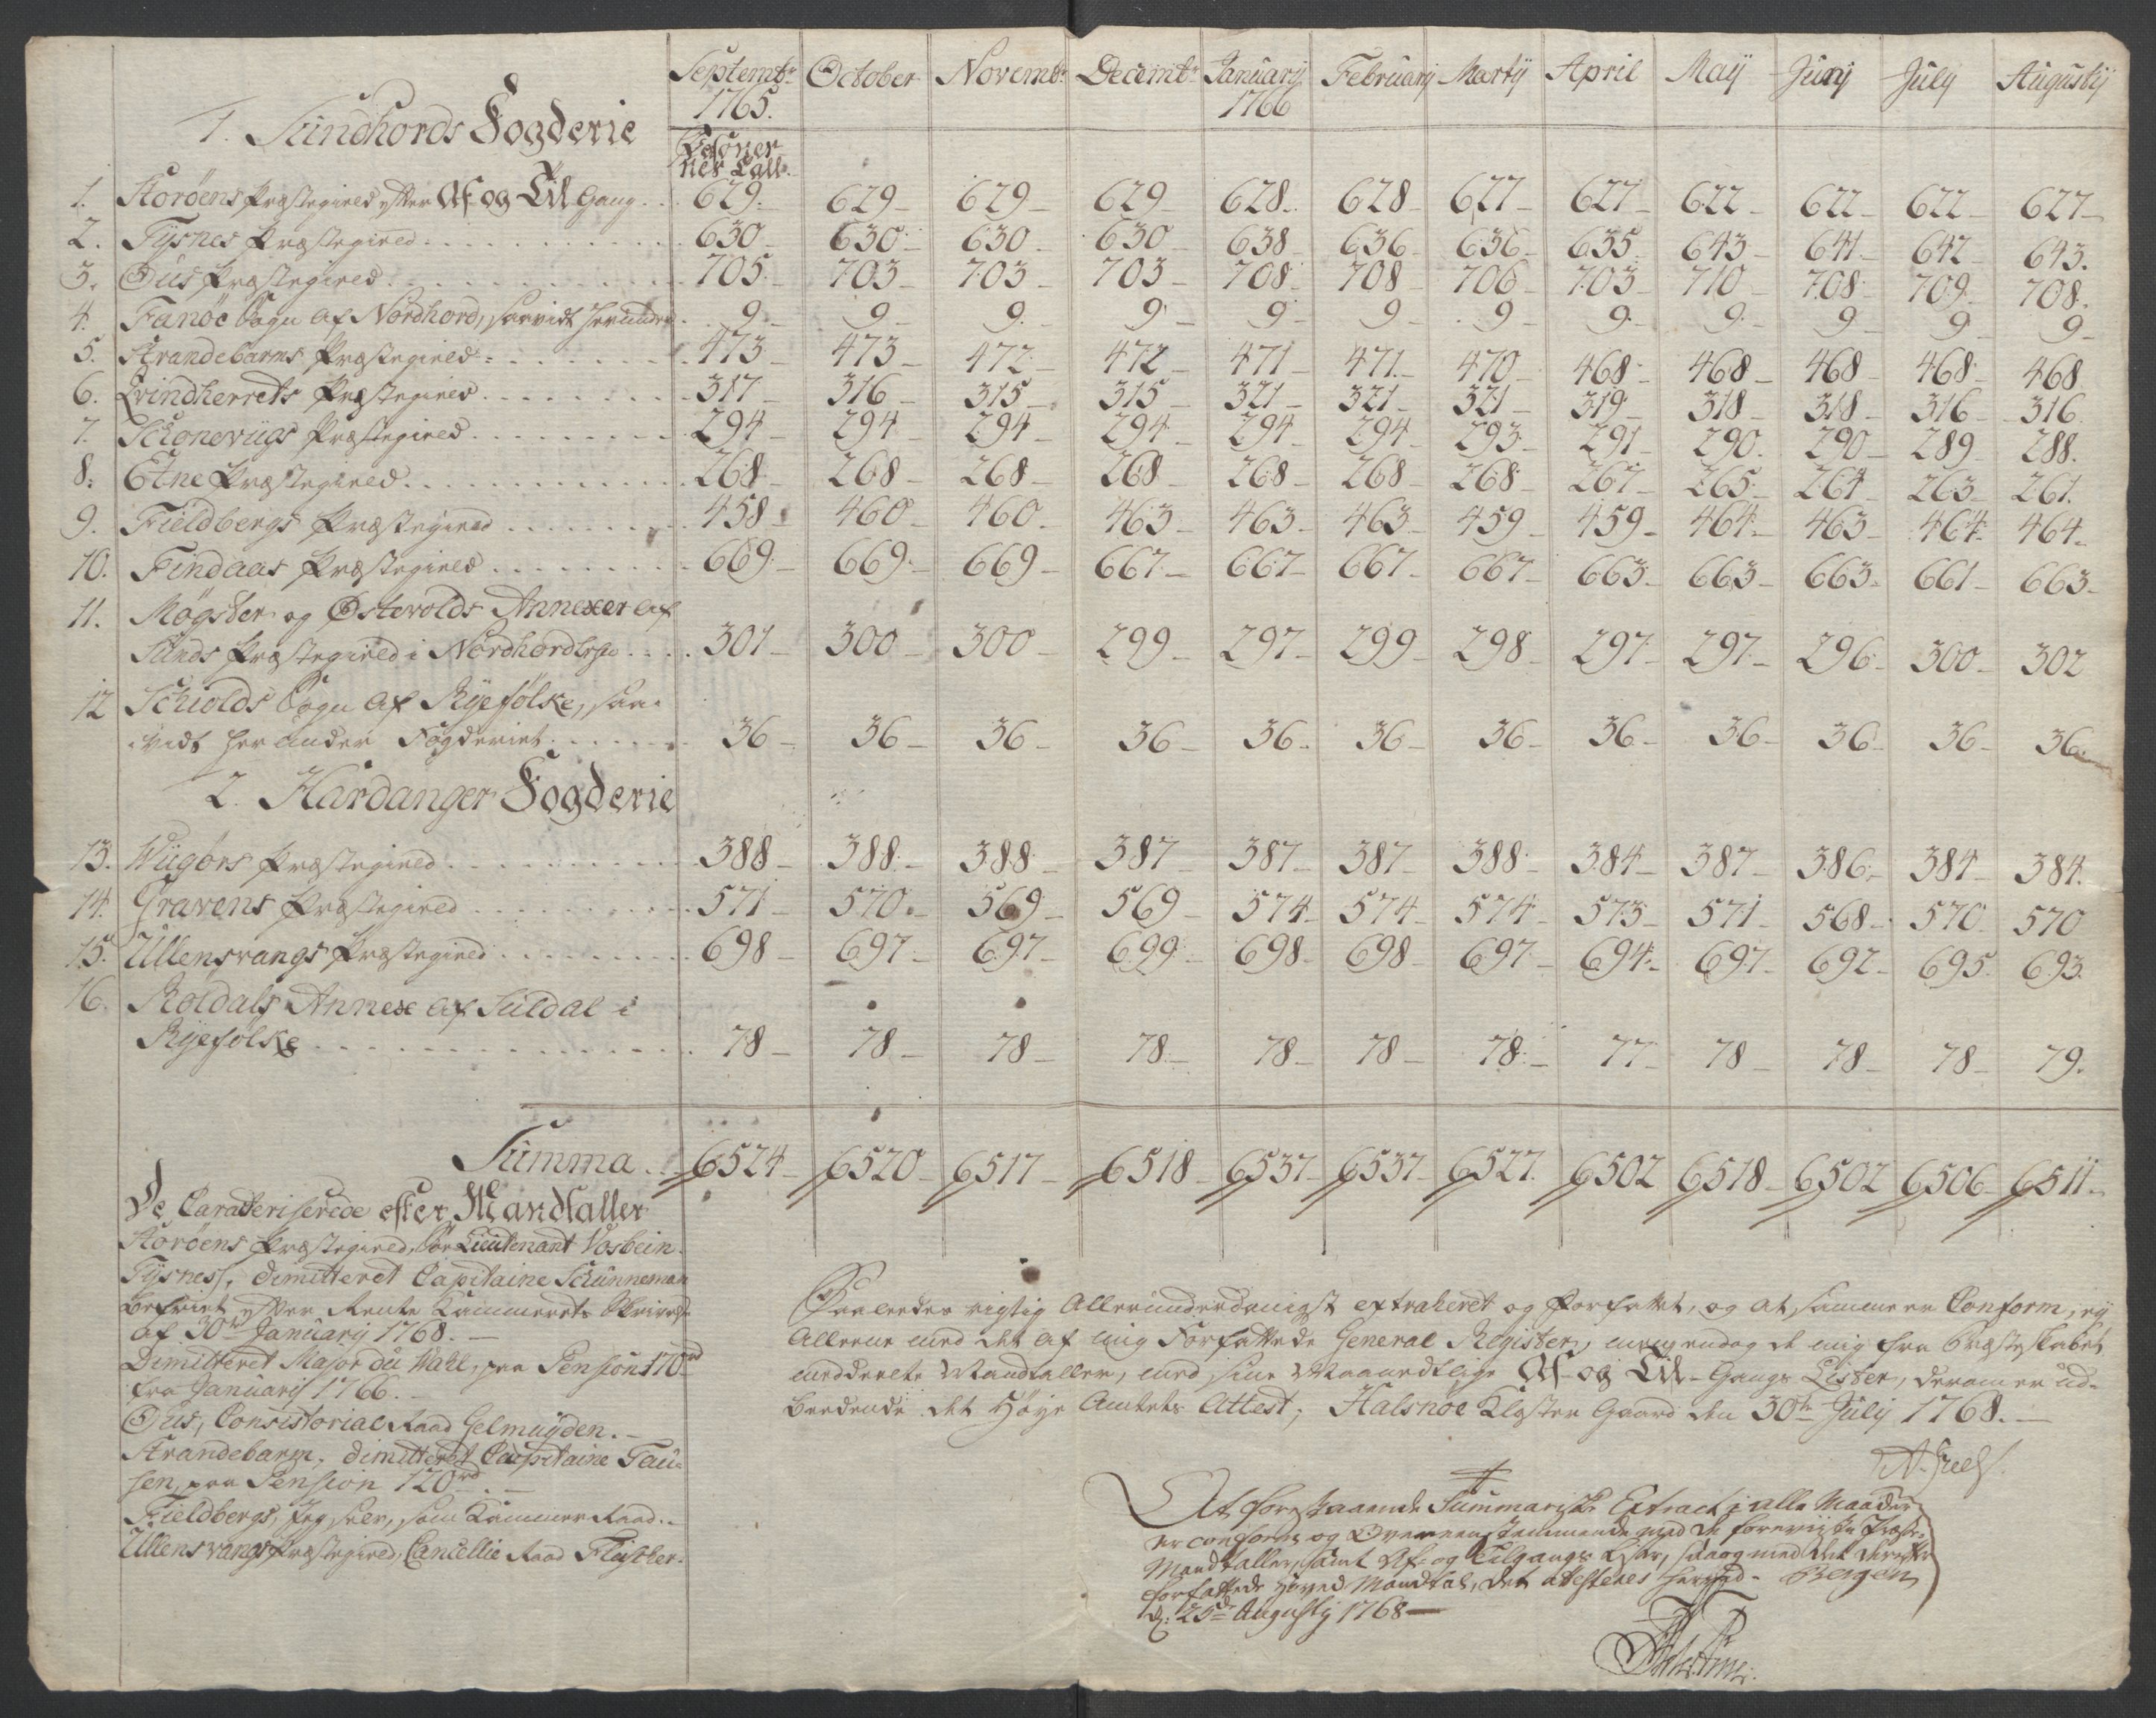 Septembr October Novembr Decembr January February Marty April May Juny July Augusty
1765. 1766
1. Sundhords Fogderie
Personer-
nes Tall.
1. Storöens Præstegield efter Af og Til Gang . . 629. 629 629 629 628. 628 627 627 622 622 622 627
2. Tysnes Præstegield . . . 630 630 630 630 638 636 636 635 643 641 642 643.
3. Ous Præstegield . . . 705. 703 703 703 708 708 706 703 710 708 709 708.
4. Fanöe Sogn af Nordhord, saavidt herunder . 9 9 9 9 9 9 9 9 9 9 9 9
5. Strandebarns Præstegield . . . 473 473 472 472 471 471 470 468 468 468 468 468
6. Qvindherrets Præstegield . . . 317 316 315 315 321 321 321 319 318 318 316 316
7. Schonevigs Præstegield . . . 294 294 294 294 294 294 293 291 290. 290 289 288.
8. Etne Præstegield . . . 268 268 268 268 268 268 268 267 265 264 263 261.
9. Fieldbergs Præstegield . . . 458 460 460 463 463 463 459 459 464 463 464 464
10. Findaas Præstegield . . . 669 669 669 667 667 667 667 663 663 663 661 663
11. Mögster og Østevolds Annexer af
Sunds Præstegield i Nordhordlehn . . . 301 300 300 299 297 299 298 297 297 296 300 302
12 Schiolds Sogn af Ryefölke, saa-
vidt her under Fogderiet . . . 36 36 36 36 36 36 36 36 36 36 36 36
2. Hardanger Fogderie
13. Wiigörs Præstegield . . . 388 388 388 387 387 387 388 384 387 386 384 384.
14. Gravens Præstegield . . . 571 570 569 569 574 574 574 573 571 568 570 570
15. Ullensvangs Præstegield . . . 698 697 697 699 698 698 697 694 697 692 695 693.
16. Roldals Annex af Suldal i
Ryefölke . . . 78 78 78 78 78 78 78 77 78 78 78 79.
Summa . . 6524 6520 6517 6518 6537 6537 6527. 6502 6518 6502 6506 6511
De Caracteriserede efter Mandtaller
Storöens Præstegield, Sør Lieutenant Vosbein
Tysnes, dimitteret Capitaine Schünneman
befriet efter Rente Kammerets Skrivelse
af 30te January 1768.
Dimitteret Major du Wahl, paa Pension 170 rd
fra January 1766.
Ous, Consistorial Raad Gelmuyden.
Strandebarm, dimitteret Capitaine Fau-
sen, paa Pension 120 rd.
Fieldbergs, Jeg selv, som Kammer Raad.
Ullensvangs Præstegield, Cancellie Raad Fleischer.
Saaledes rigtig Allerunderdanigst extraheret og Forfattet, og at samme er Conform, ey
alleene med det af mig Forfattede General Register, men endog de mig fra Præsteskabet
meddeelte Mandtaller, med sine Maanedtlige Af og Til-Gangs Lister, derom er ud-
beedende det Höye Amtets Attest; Halsnöe Kloster Gaard den 30te July 1768.
A. Juel
At forestaaende Summariske Extract i alle Maader
er conform og Overeenstemmende med de foreviiste Præste-
Mandtaller, samt Af- og Tilgangs Lister, saa og med det derefter
forfattede Hoved Mandtal, det attesteres herved. Bergen
d: 25de Augusty 1768